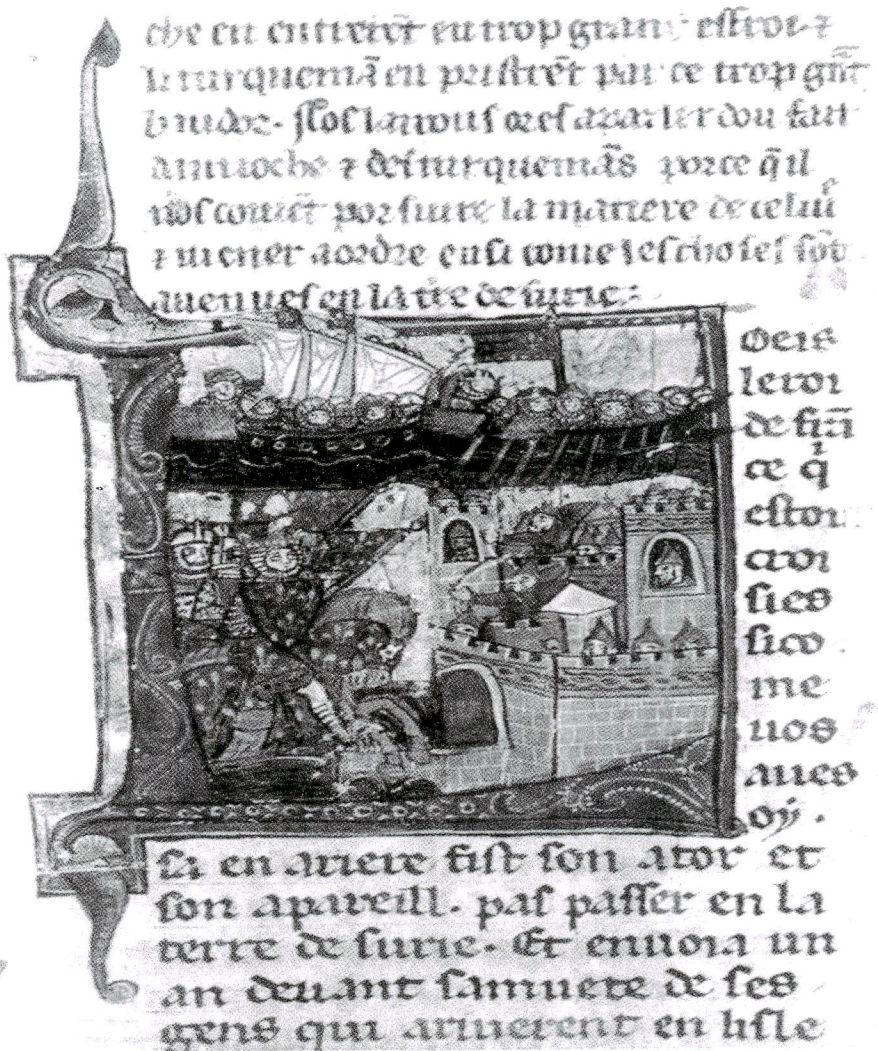 che en entrerēt en trop grant effroi ⁊
li turquemā en pristrēt par ce trop gnt̄
baudor. Nos lairons ores a parler dou fait
antioche ⁊ des turquemās porce q̄ il
nos couiēt por suire la matiere de celui
⁊ mener a ordre ensi come les choses sōt
auenues en la tr̄e de surie.
Oeis
le roi
de frā
ce q̇
estoit
croi
sies
si co
me
uos
aues
oÿ .
sa en ariere fist son ator et
son apareill. pas passer en la
terre de surie. Et enuoia un
an deuant sa muete de ses
gens qui ariuerent en lisle